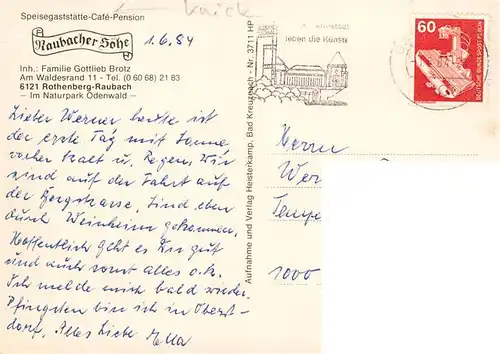 Speisegaststätte-Café-Pension
Raubacher Höhe
1.6.84
Inh.: Familie Gottlieb Brotz
Am Waldesrand 11 - Tel. (0 60 68) 21 83
6121 Rothenberg-Raubach
— Im Naturpark Odenwald —
Lieber Werner heute ist
der erste Tag mit Sonne,
vorher Kalt u. Regen. Wir
sind auf der Fahrt auf
der Bergstrasse. Sind eben
durch Weinheim gekommen.
Hoffentlich geht es Dir gut
und auch sonst alles o.k.
Ich melde mich bald wieder.
Pfingsten bin ich in Oberst-
dorf. Alles Liebe Ella
Aufnahme und Verlag Heisterkamp, Bad Kreuznach - Nr. 3711 HP
leben die Künste
60
DEUTSCHE BUNDESPOST BERLIN
Herrn
Wer
Tempe
1000